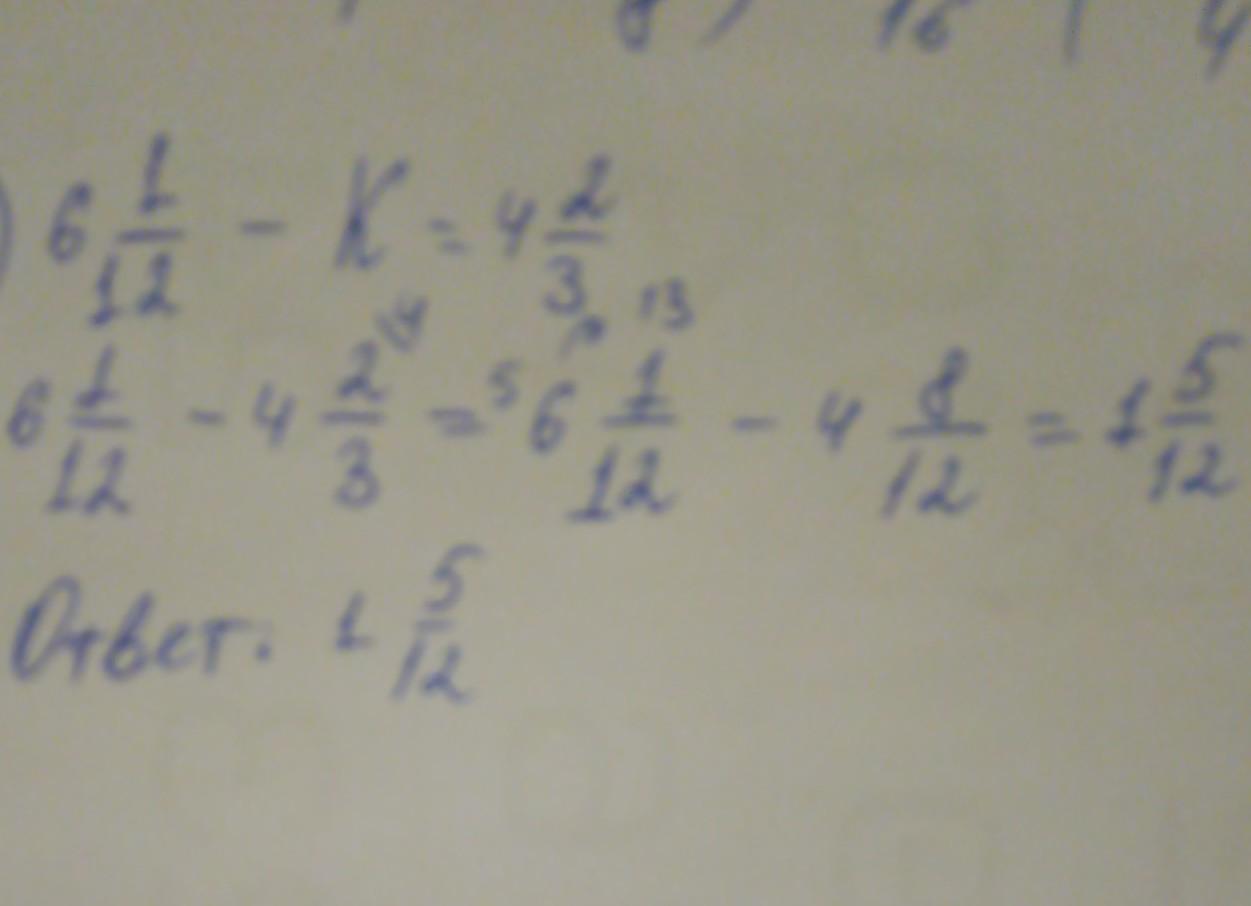 8) 16 | 4
) 6 1/12 - K = 4 2/3
6 1/12 - 4 2/3 \4 = 5 6 1/12 13 - 4 8/12 = 1 5/12
Ответ. 1 5/12